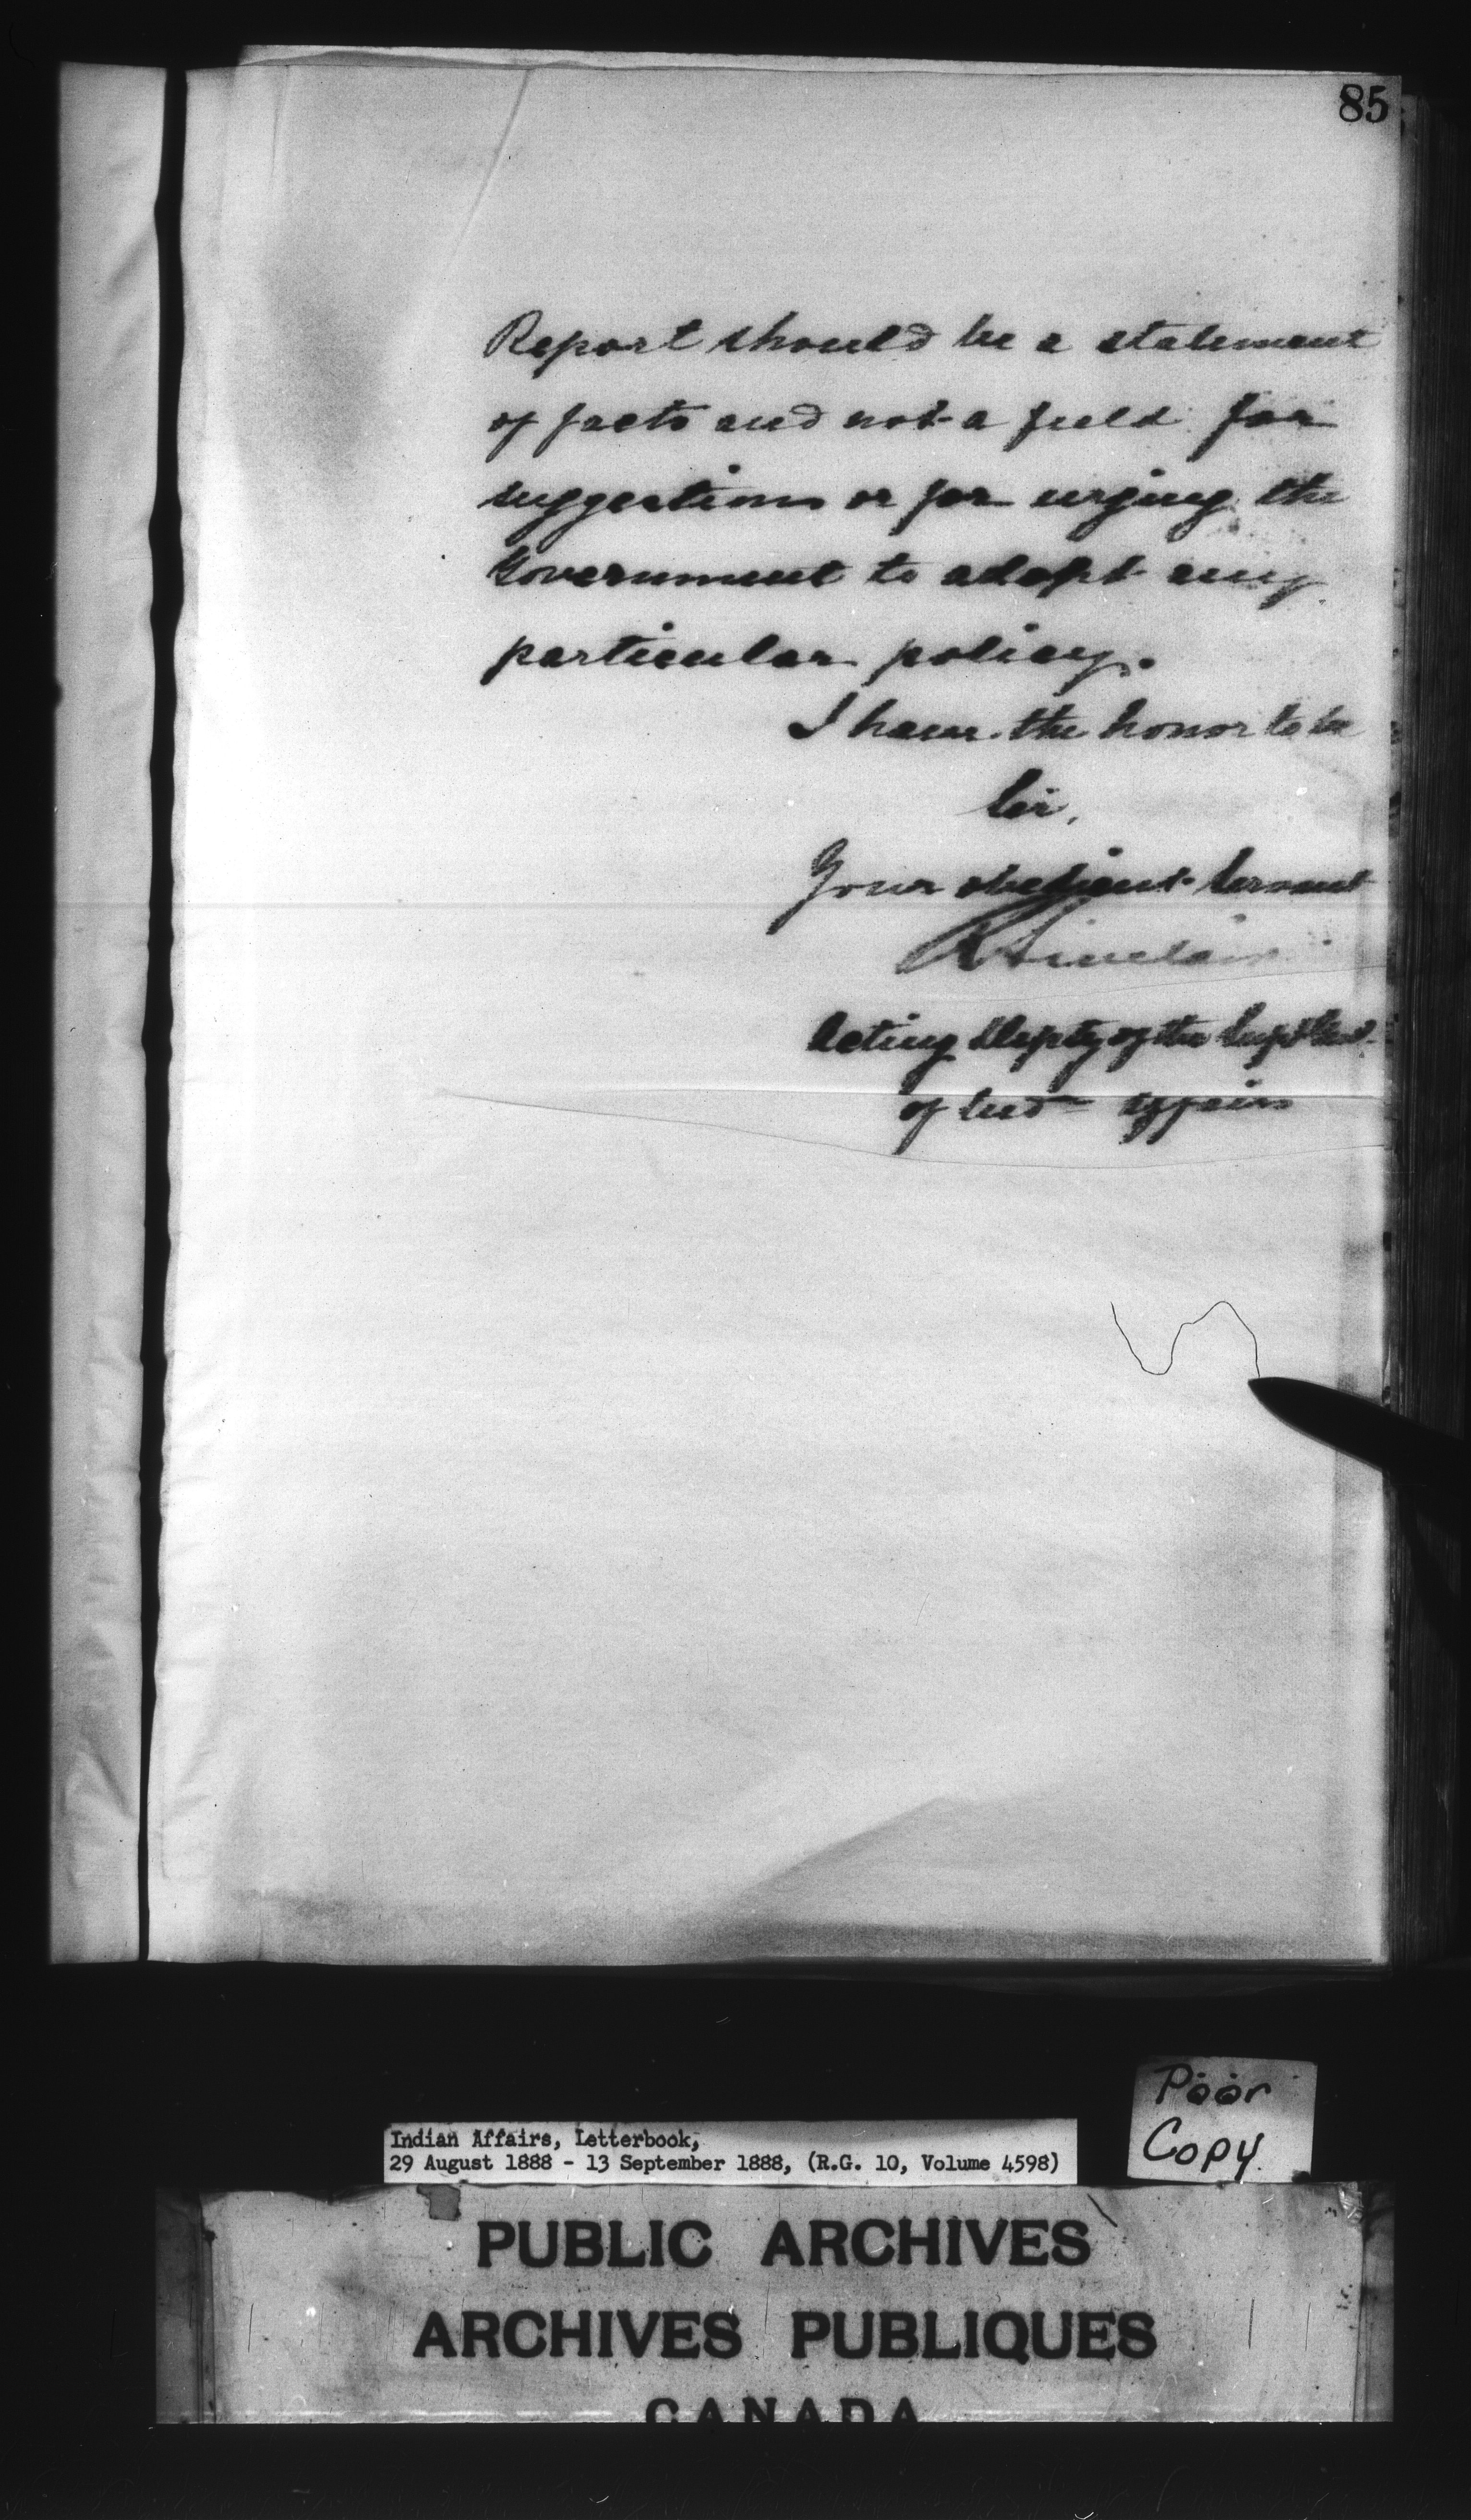 85
Report should be a statement
of facts and not a field for
suggestions or for urging the
Government to adopt any
particular policy.
I have the honor to be
Sir,
Your obedient Servant
R Sinclair
Acting Depty of the Supt Genl
of Ind Affairs
Poor
Copy.
Indian Affairs, Letterbook,
29 August 1888 - 13 September 1888, (R.G. 10, Volume 4598)
PUBLIC ARCHIVES
ARCHIVES PUBLIQUES
CANADA